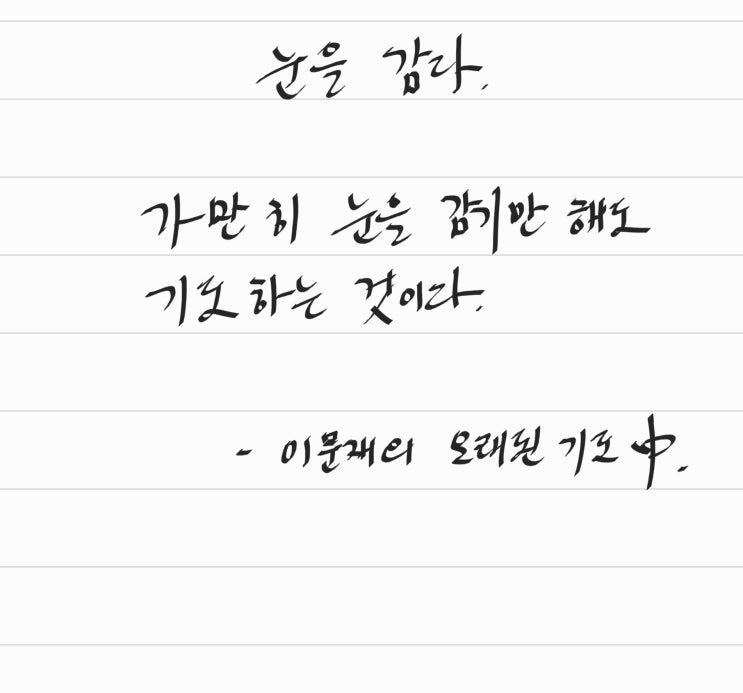 눈을 감다.
가만히 눈을 감기만 해도
기도하는 것이다.
- 이문재의 오래된 기도 中.